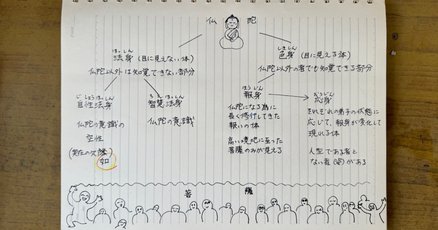 仏陀
ほっしん
法身 (目に見えない体)
仏陀以外は知覚できない部分
しきしん
色身 (目に見える体)
仏陀以外の者でも知覚できる部分
じしょうほっしん
自性法身
仏陀の意識の
空性
ちえほっしん
智慧法身
仏陀の意識
ほうじん
報身
仏陀になる為に
長く修行してきた
報いの体
高い境地に至った
菩薩のみが見える
おうじん
応身
それぞれの弟子の状態に
応じて、報身が変化して
現れる体
人型である者と
ない者(姿)がある
菩薩